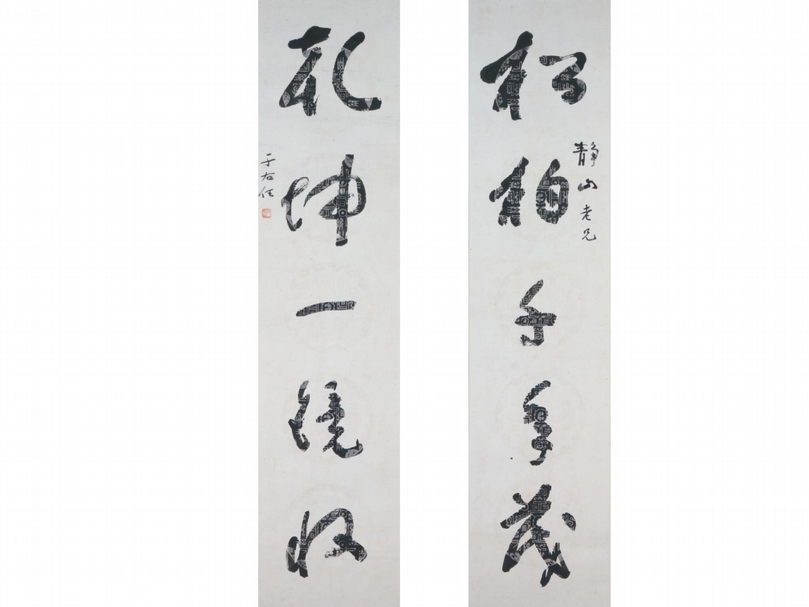 松柏千年茂
静山老兄
乾坤一镜收
于右任